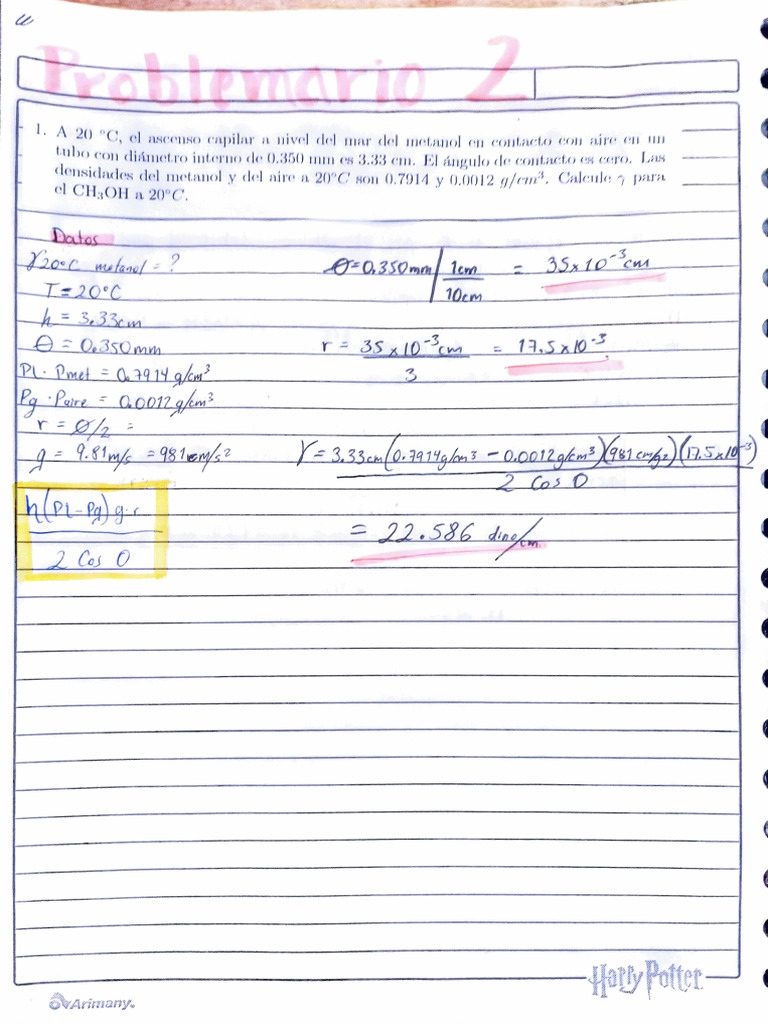 Problemario 2
1. A 20 °C, el ascenso capilar a nivel del mar del metanol en contacto con aire en un
tubo con diámetro interno de 0.350 mm es 3.33 cm. El ángulo de contacto es cero. Las
densidades del metanol y del aire a 20°C son 0.7914 y 0.0012 g/cm³. Calcule γ para
el CH₃OH a 20°C.
Datos
γ20°C metanol = ?
T = 20°C
h = 3.33cm
Θ = 0.350mm
Pl · Pmet = 0.7914 g/cm³
Pg · Paire = 0.0012 g/cm³
r = Ø/2 =
g = 9.81m/s = 981 cm/s²
h(Pl - Pg) g · r
2 Cos 0
Ø = 0.350mm | 1cm = 35x10⁻³cm
10cm
r = 35 x 10⁻³cm = 17.5x10⁻³
3
γ = 3.33cm(0.7914g/cm³ - 0.0012g/cm³)(981 cm/s2)(17.5x10⁻³)
2 Cos 0
= 22.586 dina/cm.
Harry Potter
Arimany.